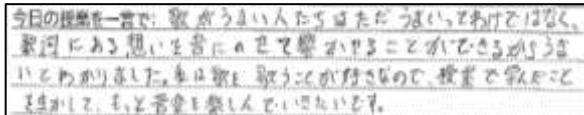 今日の授業を一言で: 歌がうまい人たちはただうまいってわけではなく、
歌詞にある想いを音にのせて響かせることができるからうま
いとわかりました。私は歌を歌うことが好きなので、授業で学んだこと
を生かして、もっと音楽を楽しんでいきたいです。